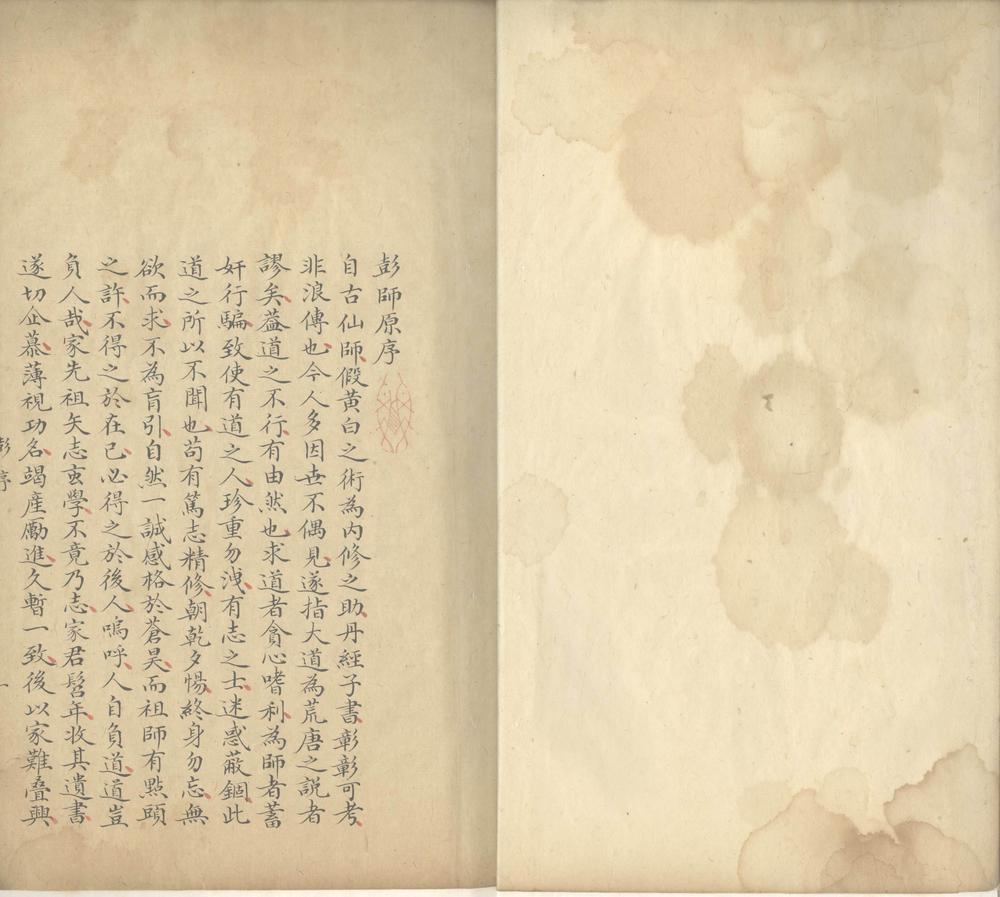 彭師原序
自古仙師假黃白之術為內修之助丹經子書彰彰可考
非浪傳也今人多因世不偶見遂指大道為荒唐之説者
謬矣葢道之不行有由然也求道者貪心嗜利為師者蓄
奸行騙致使有道之人珍重勿洩有志之士迷惑蔽錮此
道之所以不聞也苟有篤志精修朝乾夕惕終身勿忘無
欲而求不為盲引自然一誠感格於蒼昊而祖師有㸃頭
之許不得之於在己必得之於後人嗚呼人自負道道豈
負人哉家先祖矢志玄學不竟乃志家君髫年收其遺書
遂切企慕薄視功名竭產勵進久暫一致後以家難疊興
彭序
一